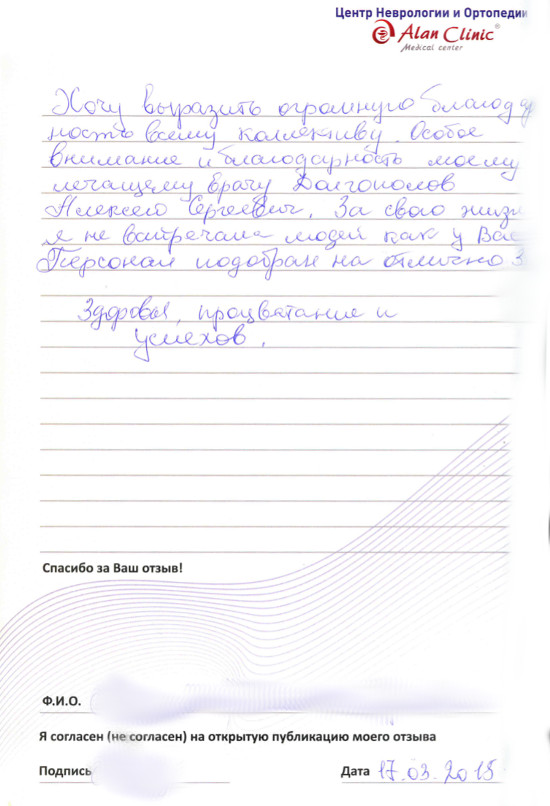 Центр Неврологии и Ортопедии
Alan Clinic®
Medical center
Хочу выразить огромную благодар
ность всему коллективу. Особое
внимание и благодарность моему
лечащему врачу Долгополов
Алексею Сергеевич. За свою жизн
я не встречала людей как у Вас
Персонал подобран на отлично
Здоровья, процветание и
успехов.
Спасибо за Ваш отзыв!
Ф.И.О.
Я согласен (не согласен) на открытую публикацию моего отзыва
Подпись
Дата 17.03.2015